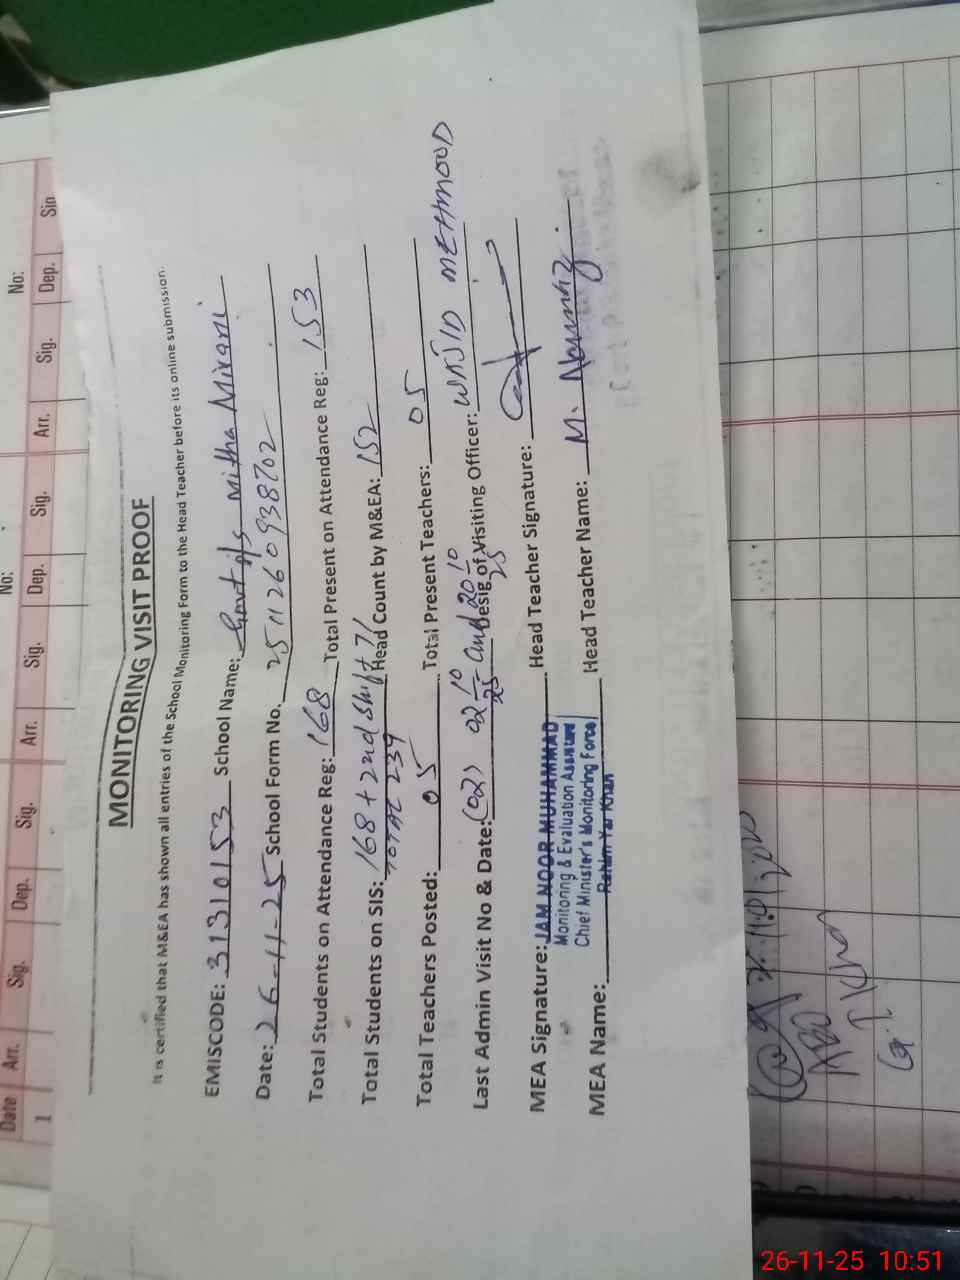 MONITORING VISIT PROOF
It is certified that M&EA has shown all entries of the School Monitoring Form to the Head Teacher before its online submission.
EMISCODE: 31310153 School Name: Govt p/s Mitha Mirani
Date: 26-11-25 School Form No. 2511260938202
Total Students on Attendance Reg: 168 Total Present on Attendance Reg: 153
Total Students on SIS: 168 + 2nd Shift 71 Head Count by M&EA: 152
TOTAL 239
Total Teachers Posted: 05 Total Present Teachers: 05
Last Admin Visit No & Date: (02) 02 10/25 and 20 10/25 Desig of Visiting Officer: WAJID MEHMOOD
MEA Signature: JAM NOOR MUHAMMAD Head Teacher Signature:
Monitoring & Evaluation Assistant
Chief Minister's Monitoring Force
Rahim Yar Khan
MEA Name: Head Teacher Name: M. Nawaz
No: No:
Date Arr. Sig. Dep. Sig. Arr. Sig. Dep. Sig. Arr. Sig. Dep. Sin
1
26-11-25 10:51